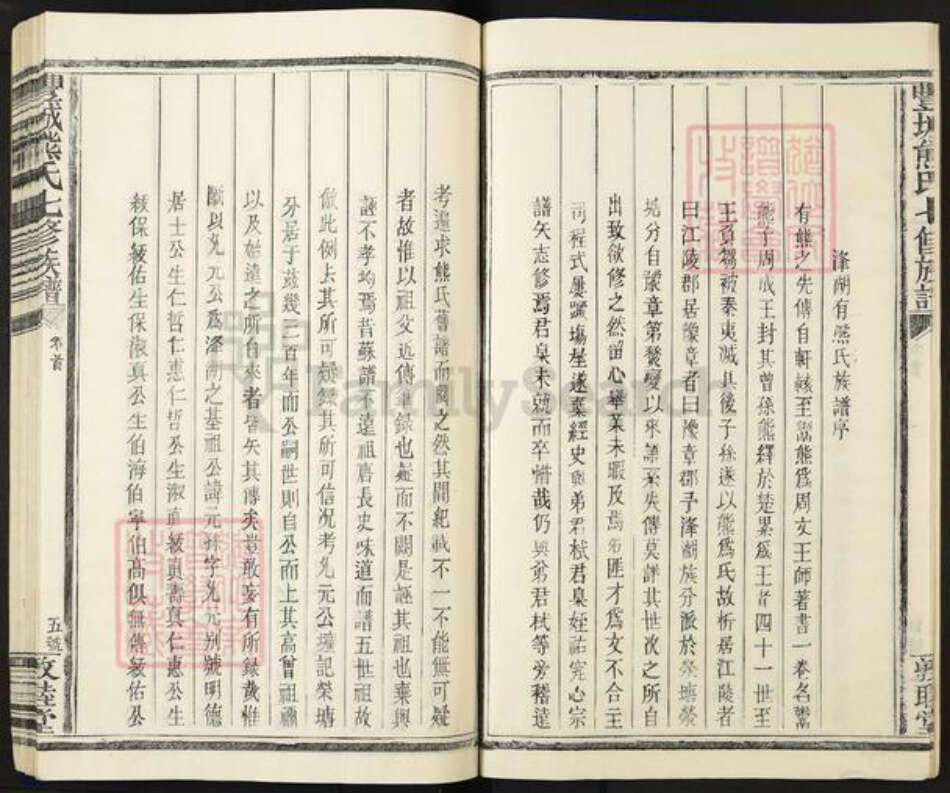 豐城熊氏七修族譜
敦睦堂
洚湖有熊氏族譜序
有熊之先傳自軒轅至鬻熊爲周文王師著書一卷名鬻
熊子周成王封其曾孫熊繹於楚累爲王者四十一世至
王負芻被秦夷滅其後子孫遂以熊爲氏故析居江陵者
曰江陵郡居豫章者曰豫章郡予洚湖族分派於榮塘榮
塘分自豫章第兵燹變以來譜系失傳莫詳其世次之所自
出致欲修之然留心舉業未暇及焉弟匪才爲文不合主
司程式屢躓塲屋遂棄經史與弟君栻君臬姪祐究心宗
譜矢志修焉君臬未就而卒惜哉仍與弟君栻等旁稽逺
考遍求熊氏舊譜而閱之然其間紀載不一不能無可疑
者故惟以祖父近傳筆錄也疑而不闕是誣其祖也棄與
誣不孝均焉昔蘇譜不遠祖唐長史味道而譜五世祖故
倣此例去其所可疑錄其所可信況考允元公壙記榮塘
分居于茲幾三百年而公嗣世則自公而上其高曾祖禰
以及始遠之所自來者昏矣其傳矣豈敢妄有所錄哉惟
斷以允元公爲洚湖之基祖公諱元 字允元别號明德
居士公生仁哲仁惠仁哲公生淑真綬真壽真仁惠公生
綬保綬佑生保淑真公生伯海伯寧伯高俱無傳綬佑公
豐城熊氏七修族譜
卷首
五號
敦睦堂
FamilySearch